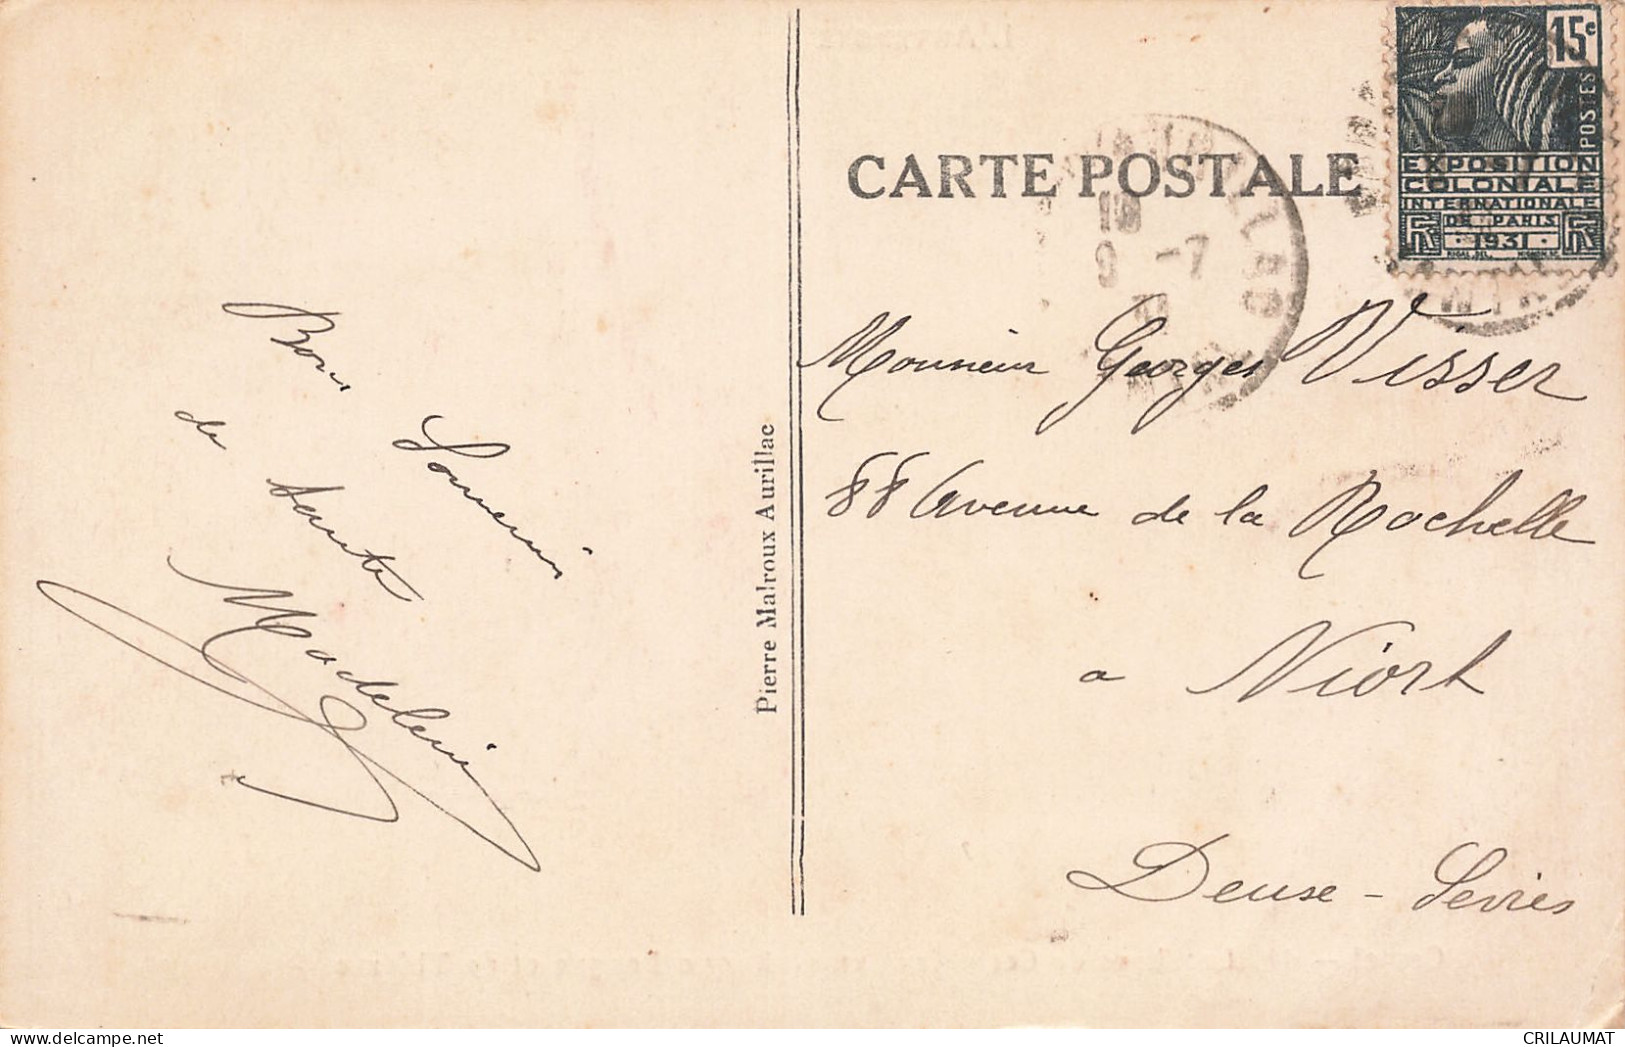 Bons Souvenirs
de
tante
Madeleine
Pierre Malroux Aurillac
CARTE POSTALE
15c
POSTES
EXPOSITION
COLONIALE
INTERNATIONALE
DE PARIS
RF 1931 RF
18
9 -7
Monsieur Georges Visser
88 Avenue de la Rochelle
a Niort
Deuse - Sevres
delcampe.net
CRILAUMAT